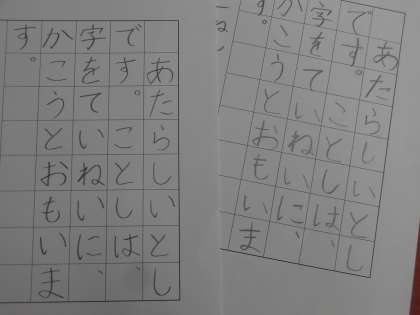 あたらしいとし
です。ことしは、
字をていねいに、
かこうとおもいま
す。
あたらしいとし
です。ことしは、
字をていねいに、
かこうとおもいま
す。